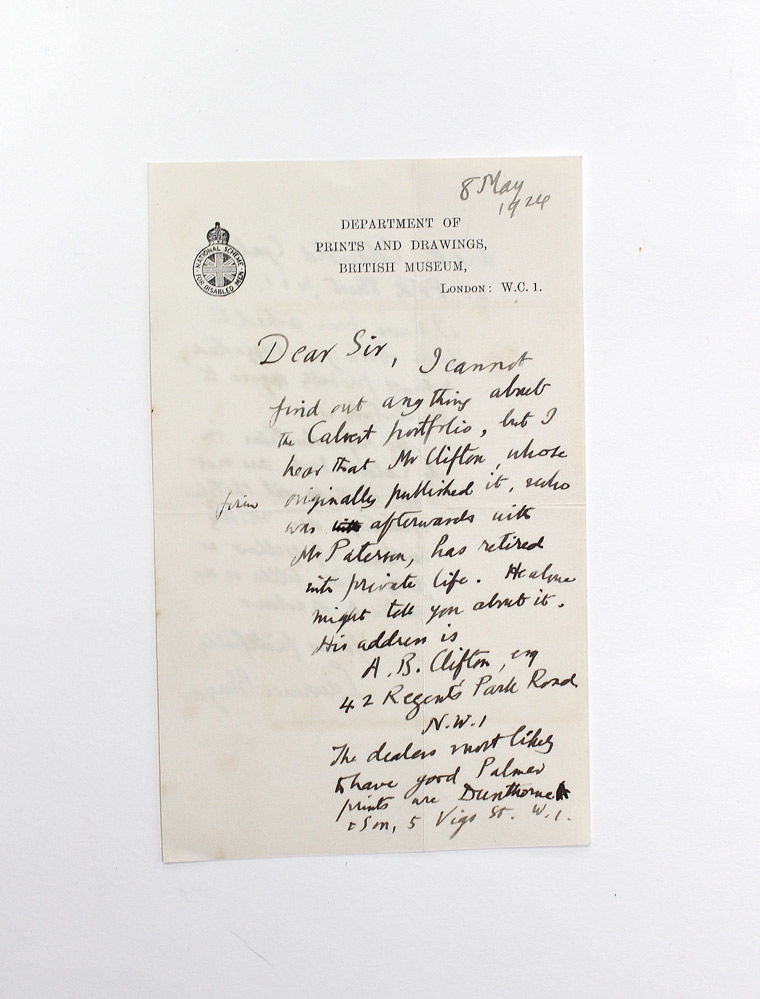 8 May
1924
DEPARTMENT OF
PRINTS AND DRAWINGS,
BRITISH MUSEUM,
LONDON: W.C. 1.
NATIONAL SCHEME
FOR DISABLED MEN
Dear Sir, I cannot
find out anything about
the Calvert portfolio, but I
hear that Mr Clifton, whose
firm originally published it, who
was afterwards with
Mr Paterson, has retired
into private life. He alone
might tell you about it.
His address is
A. B. Clifton, esq
42 Regent's Park Road
N.W.1
The dealers most likely
to have good Palmer
prints are Dunthorne
& Son, 5 Vigo St. W.1.